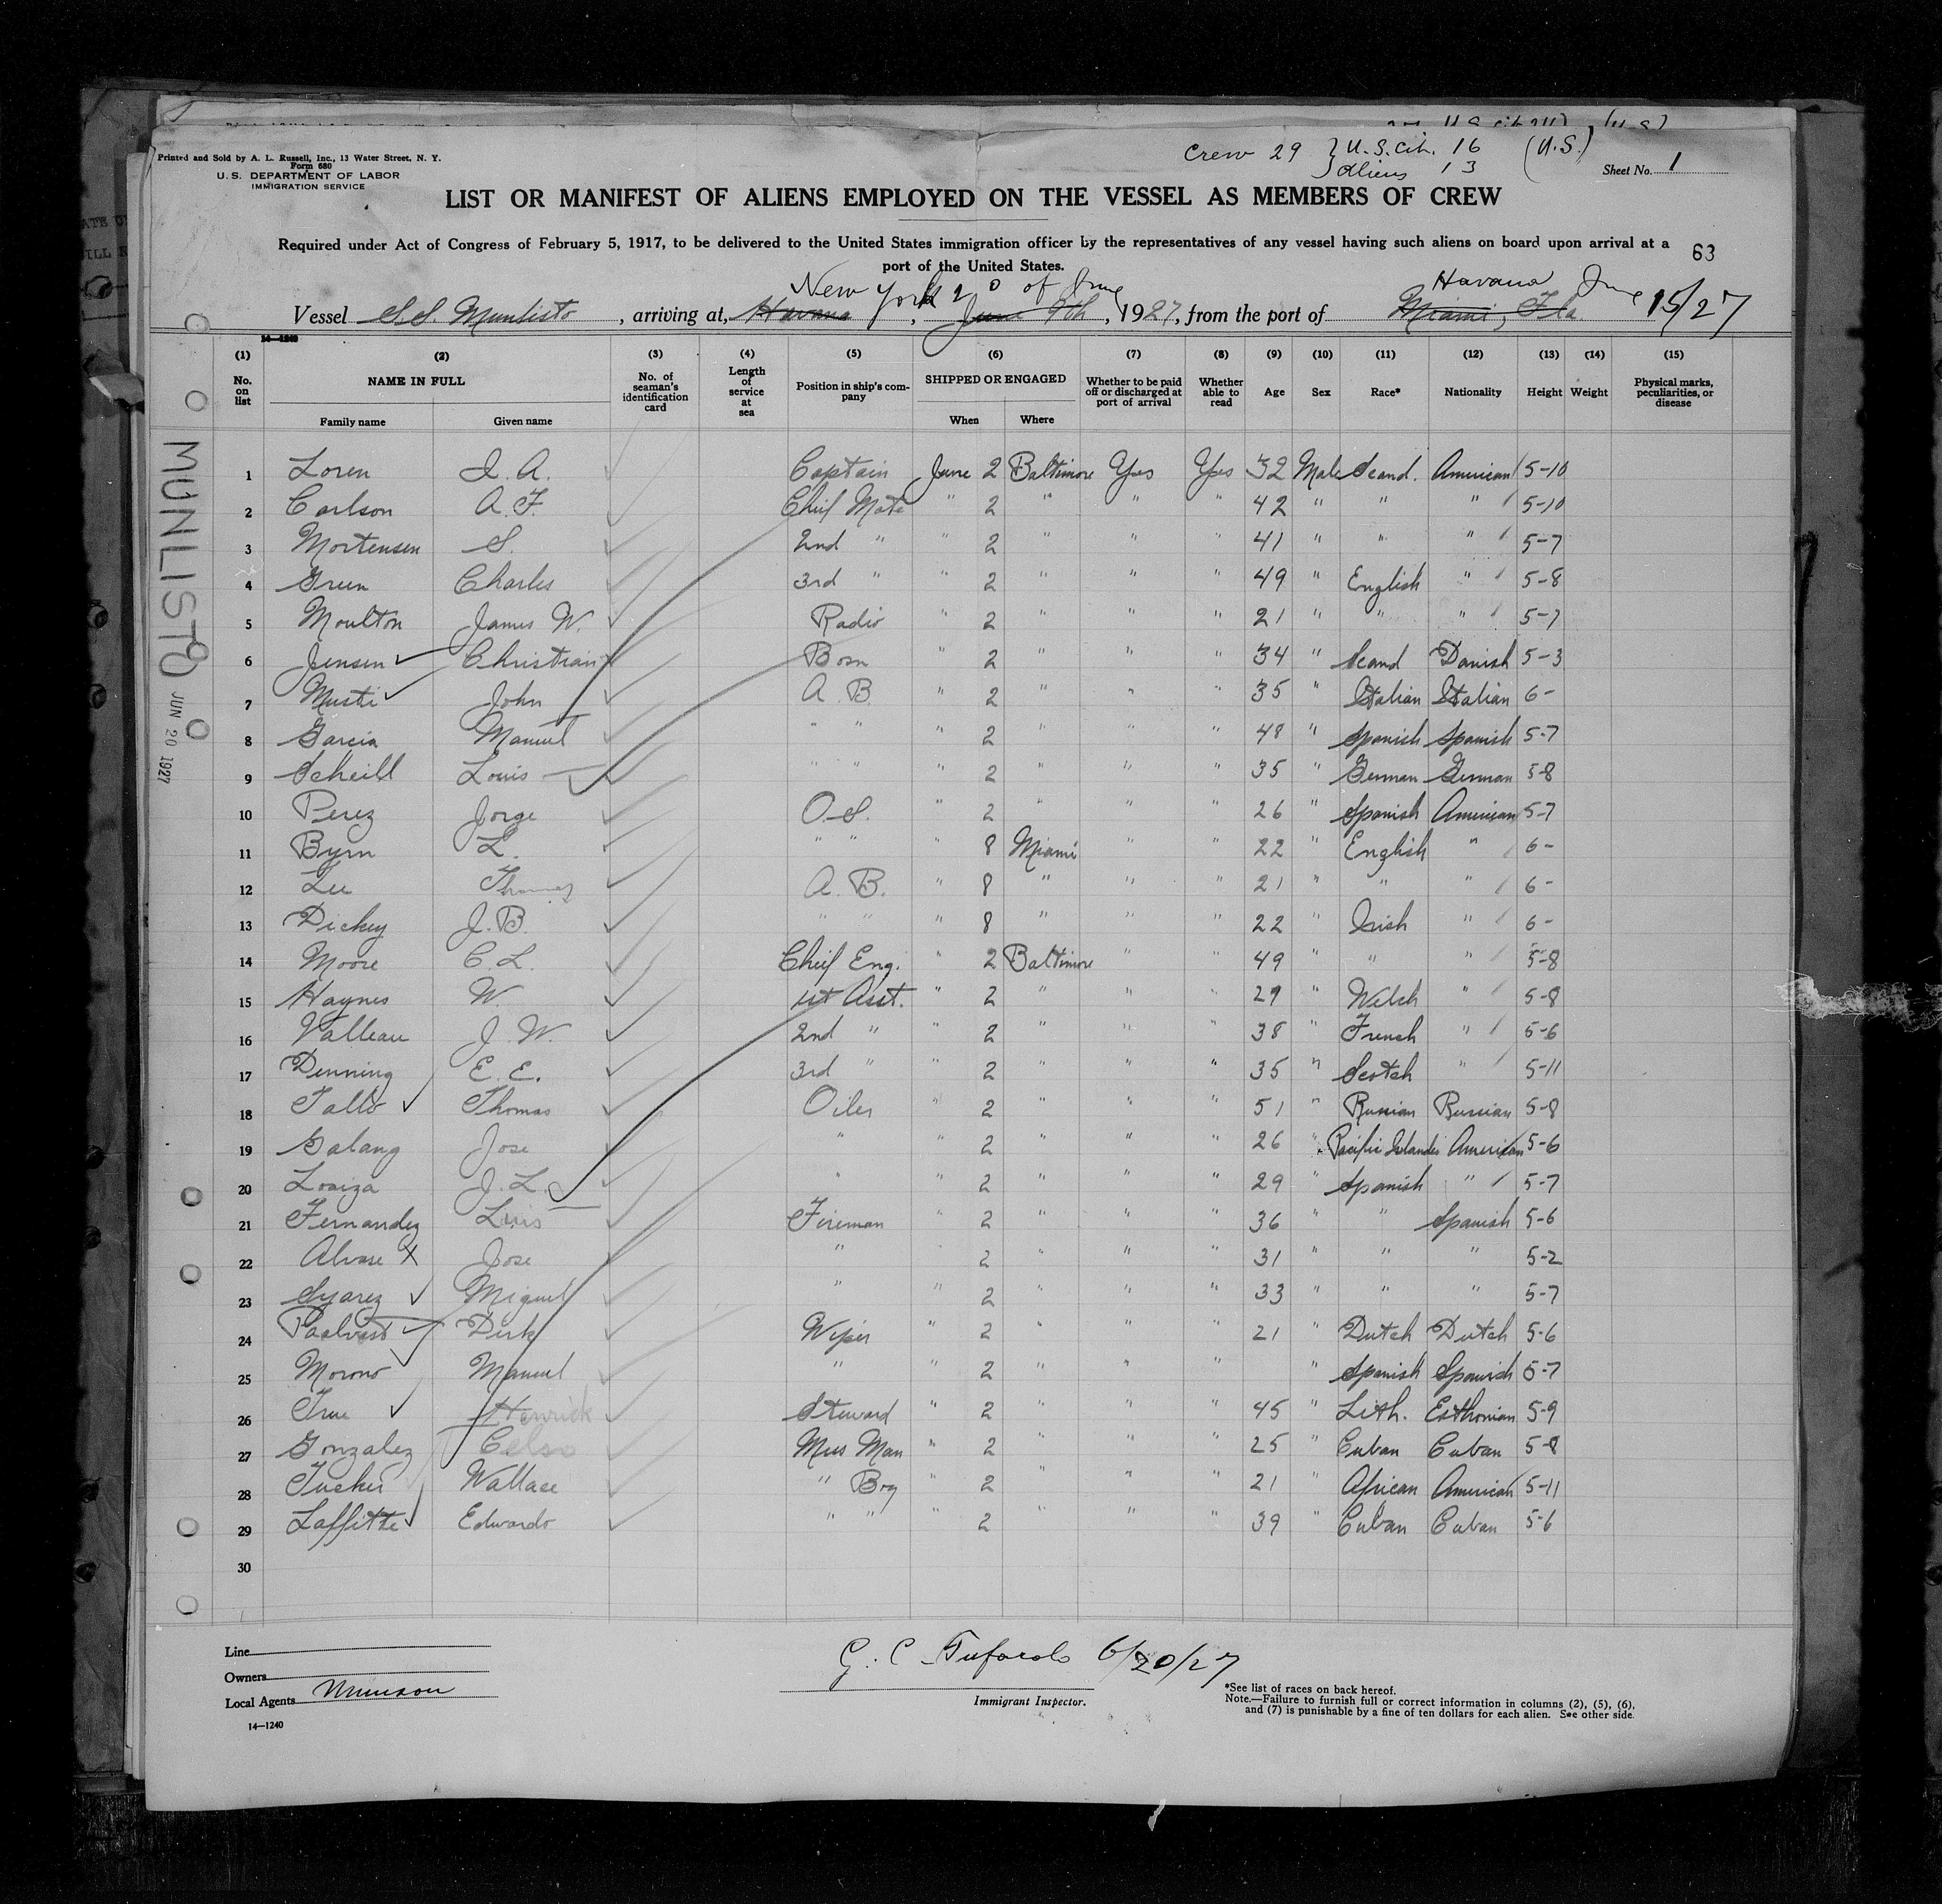 Crew 29 } U.S. Cit. 16 (U.S.)
Aliens 13
Printed and Sold by A. L. Russell, Inc., 13 Water Street, N. Y.
Form 680
U. S. DEPARTMENT OF LABOR
IMMIGRATION SERVICE
Sheet No. 1
LIST OR MANIFEST OF ALIENS EMPLOYED ON THE VESSEL AS MEMBERS OF CREW
Required under Act of Congress of February 5, 1917, to be delivered to the United States immigration officer by the representatives of any vessel having such aliens on board upon arrival at a
port of the United States.
63
New York 20 of June Havana June 15/27
Vessel S.S. Munlisto, arriving at, Havana, June 9th, 1927, from the port of Miami, Fla
14—1240
(1) (2) (3) (4) (5) (6) (7) (8) (9) (10) (11) (12) (13) (14) (15)
No. on list NAME IN FULL Family name Given name No. of seaman's identification card Length of service at sea Position in ship's company SHIPPED OR ENGAGED When Where Whether to be paid off or discharged at port of arrival Whether able to read Age Sex Race* Nationality Height Weight Physical marks, peculiarities, or disease
1 Loren J. A. Captain June 2 Baltimore Yes Yes 32 Male Scand. American 5-10
2 Carlson A. F. Chief Mate " 2 " " " 42 " " " 5-10
3 Mortensen S. 2nd " " 2 " " " 41 " " " 5-7
4 Green Charles 3rd " " 2 " " " 49 " English " 5-8
5 Moulton James W. Radio " 2 " " " 21 " " " 5-7
6 Jensen Christian Bosn " 2 " " " 34 " Scand Danish 5-3
7 Musti John A. B. " 2 " " " 35 " Italian Italian 6-
8 Garcia Manuel " " " 2 " " " 48 " Spanish Spanish 5-7
9 Scheill Louis " " " 2 " " " 35 " German German 5-8
10 Perez Jorge O.S. " 2 " " " 26 " Spanish American 5-7
11 Byrn L. " " " 8 Miami " " 22 " English " 6-
12 Lee Thomas A. B. " 8 " " " 21 " " " 6-
13 Dickey J. B. " " " 8 " " " 22 " Irish " 6-
14 Moore C. L. Chief Eng. " 2 Baltimore " " 49 " " " 5-8
15 Haynes W 1st Asst. " 2 " " " 29 " Welsh " 5-8
16 Valleau J. W. 2nd " " 2 " " " 38 " French " 5-6
17 Denning E. E. 3rd " " 2 " " " 35 " Scotch " 5-11
18 Thomas Oiler " 2 " " " 51 " Russian Russian 5-8
19 Galang Jose " " 2 " " " 26 " Pacific Islander American 5-6
20 Loaiza J. L. " " 2 " " " 29 " Spanish " 5-7
21 Fernandez Luis Fireman " 2 " " " 36 " " Spanish 5-6
22 Alvare X Jose " " 2 " " " 31 " " " 5-2
23 Suarez Miguel " " 2 " " " 33 " " " 5-7
24 Dirk Wiper " 2 " " " 21 " Dutch Dutch 5-6
25 Morono Manuel " " 2 " " " " Spanish Spanish 5-7
26 True Henrick Steward " 2 " " " 45 " Lith. Esthonian 5-9
27 Gonzalez Celso Mess Man " 2 " " " 25 " Cuban Cuban 5-8
28 Tucker Wallace " Boy " 2 " " " 21 " African American 5-11
29 Laffitte Edwardo " " " 2 " " " 39 " Cuban Cuban 5-6
30
MUNLISTO
JUN 20 1927
Line
Owners
Local Agents Munson
14—1240
G. C. 6/20/27
Immigrant Inspector.
*See list of races on back hereof.
Note.—Failure to furnish full or correct information in columns (2), (5), (6),
and (7) is punishable by a fine of ten dollars for each alien. See other side.